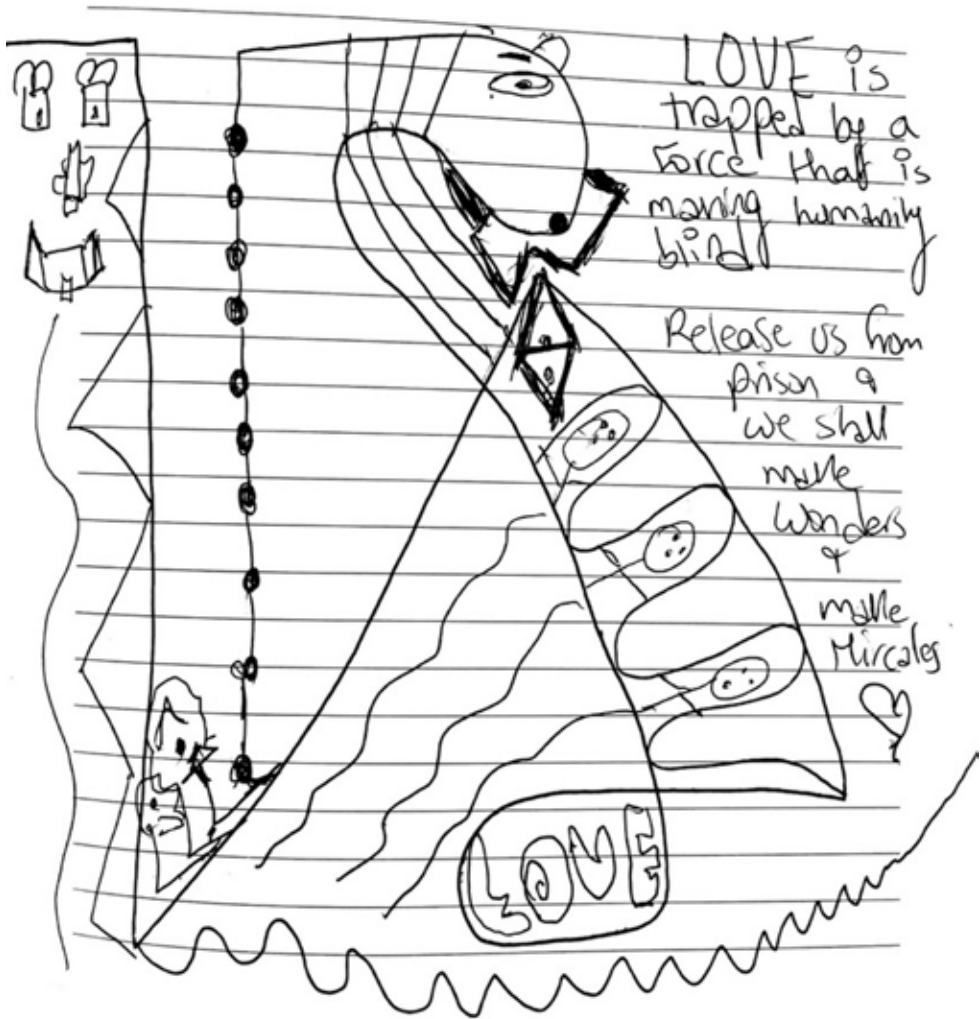 LOVE is
trapped by a
Force that is
making humanity
blind
Release us from
prison &
we shall
make
wonders
&
make
Mircales
LOVE